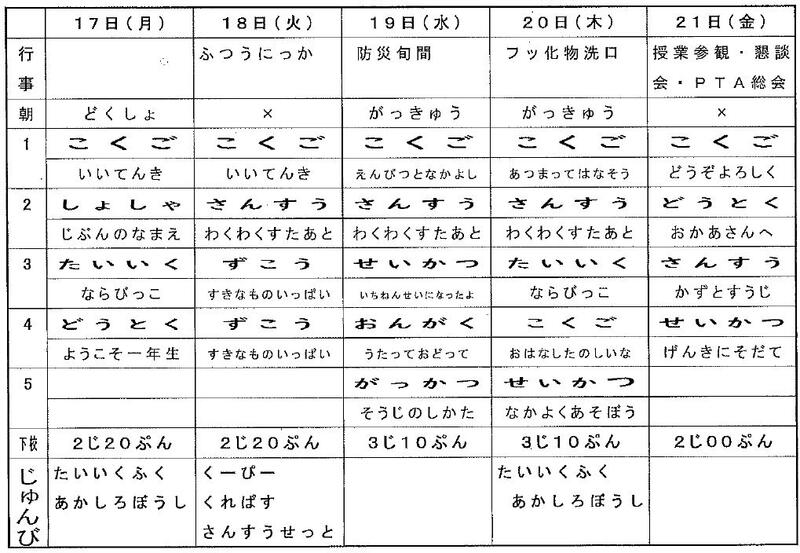 17日(月) 18日(火) 19日(水) 20日(木) 21日(金)
行事 ふつうにっか 防災旬間 フッ化物洗口 授業参観・懇談
会・PTA総会
朝 どくしょ × がっきゅう がっきゅう ×
1 こくご こくご こくご こくご こくご
いいてんき いいてんき えんぴつとなかよし あつまってはなそう どうぞよろしく
2 しょしゃ さんすう さんすう さんすう どうとく
じぶんのなまえ わくわくすたあと わくわくすたあと わくわくすたあと おかあさんへ
3 たいいく ずこう せいかつ たいいく さんすう
ならびっこ すきなものいっぱい いちねんせいになったよ ならびっこ かずとすうじ
4 どうとく ずこう おんがく こくご せいかつ
ようこそ一年生 すきなものいっぱい うたっておどって おはなしたのしいな げんきにそだて
5 がっかつ せいかつ
そうじのしかた なかよくあそぼう
下校 2じ20ぷん 2じ20ぷん 3じ10ぷん 3じ10ぷん 2じ00ぷん
じゅんび たいいくふく くーぴー たいいくふく
あかしろぼうし くれぱす あかしろぼうし
さんすうせっと